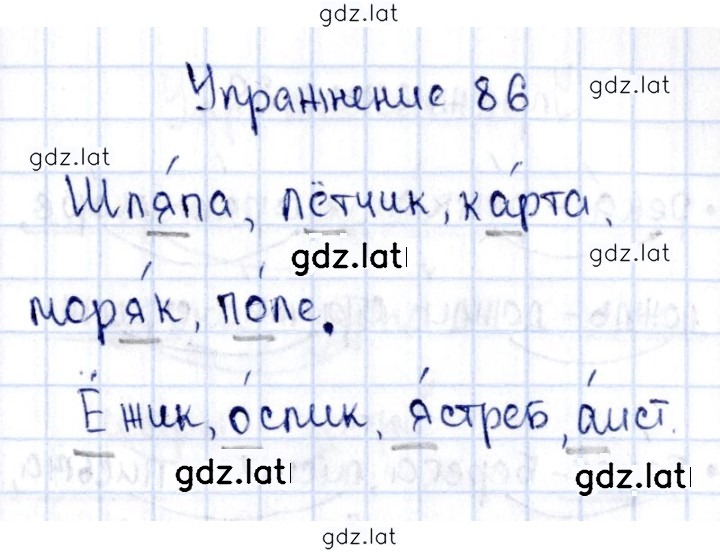 gdz.lat
Упражнение 86
gdz.lat
gdz.lat
Шля́па, лётчик, ка́рта,
gdz.lat
gdz.lat
моря́к, по́ле.
Ёжик, о́слик, я́стреб, а́ист.
gdz.lat
gdz.lat
gdz.lat